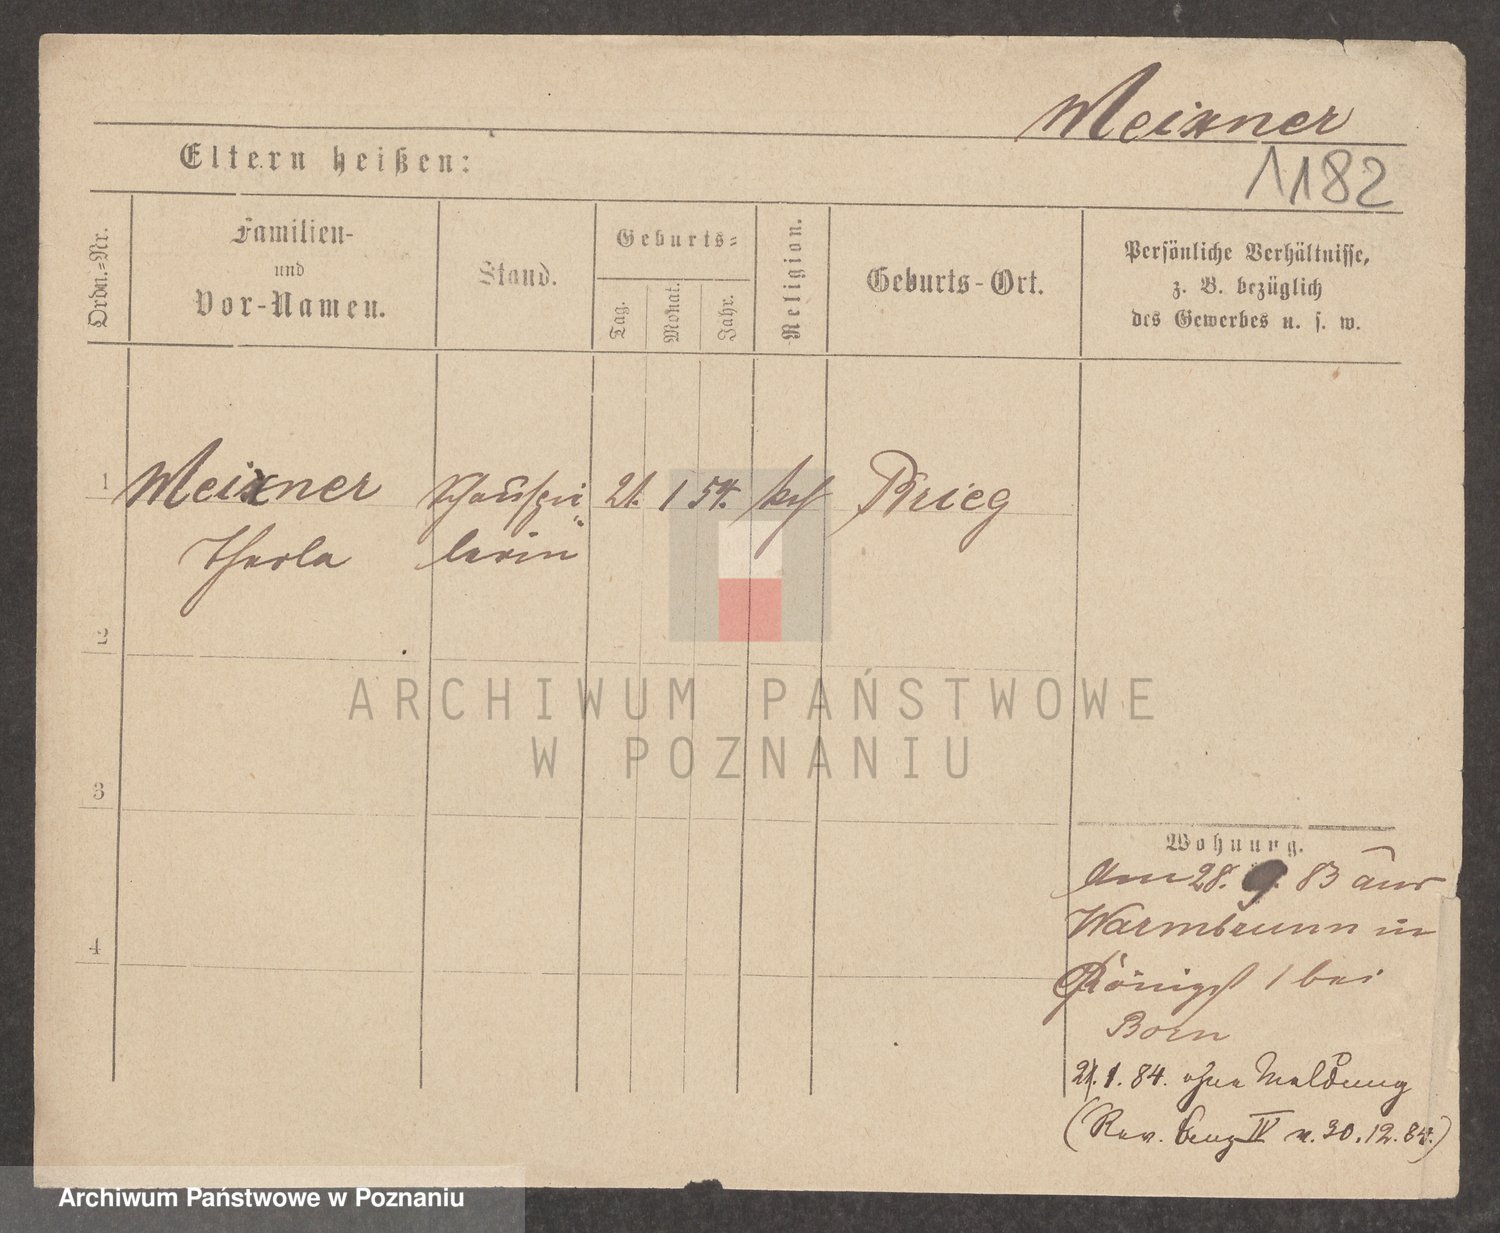 Meixner
1182
Eltern heißen:
Ordn.=Nr.
Familien-
und
Vor-Namen.
Stand.
Geburts=
Tag.
Monat.
Jahr.
Religion.
Geburts-Ort.
Persönliche Verhältnisse,
z. B. bezüglich
des Gewerbes u. s. w.
1
Meixner Schauspie 21. 1 54. kath Brieg
Thesla lerin
2
ARCHIWUM PAŃSTWOWE
W POZNANIU
3
Wohnung.
Am 28. 9. 83 aus
4
Warmbrunn in
Königst 1 bei
Born
21. 1. 84. ohne Meldung
(Rev. IV v. 30.12.84.)
Archiwum Państwowe w Poznaniu